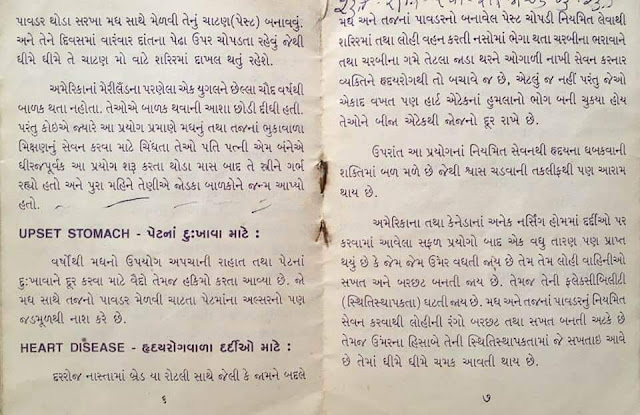 પાવડર થોડા સરખા મધ સાથે મેળવી તેનું ચાટણ(પેસ્ટ) બનાવવું.
અને તેને દિવસમાં વારંવાર દાંતના પેઢા ઉપર ચોપડતા રહેવું જેથી
ધીમે ધીમે તે ચાટણ મો વાટે શરિરમાં દાખલ થતું રહેશે.
અમેરિકાનાં મેરીલેંડના પરણેલા એક યુગલને છેલ્લા ચૌદ વર્ષથી
બાળક થતા નહોતા. તેઓએ બાળક થવાની આશા છોડી દીધી હતી.
પરંતુ કોઇએ જ્યારે આ પ્રયોગ પ્રમાણે મધનું તથા તજનાં ભુકાવાળા
મિક્ષણનું સેવન કરવા માટે ચિંધતા તેઓ પતિ પત્ની એમ બંનેએ
ધીરજપૂર્વક આ પ્રયોગ શરૂ કરતા થોડા માસ બાદ તે સ્ત્રીને ગર્ભ
રહ્યો હતો અને પુરા મહિને તેણીએ જોડકા બાળકોને જન્મ આપ્યો
હતો.
UPSET STOMACH - પેટનાં દુઃખાવા માટે :
વર્ષોથી મધનો ઉપયોગ અપચાની રાહત તથા પેટનાં
દુઃખાવાને દુર કરવા માટે વૈદો તેમજ હકિમો કરતા આવ્યા છે. જો
મધ સાથે તજનો પાવડર મેળવી ચાટતા પેટમાંના અલ્સરનો પણ
જડમૂળથી નાશ કરે છે.
HEART DISEASE - હૃદયરોગવાળા દર્દીઓ માટે :
દરરોજ નાસ્તામાં બ્રેડ યા રોટલી સાથે જેલી કે જામને બદલે
૬
મધ અને તજનાં પાવડરનો બનાવેલ પેસ્ટ ચોપડી નિયમિત લેવાથી
શરિરમાં તથા લોહી વહન કરતી નસોમાં ભેગા થતા ચરબીના ભરાવાને
તથા ચરબીના ગમે તેટલા જાડા થરને ઓગાળી નાખી સેવન કરનાર
વ્યક્તિને હૃદયરોગથી તો બચાવે જ છે, એટલું જ નહીં પરંતુ જેઓ
એકાદ વખત પણ હાર્ટ એટેકનાં હુમલાનો ભોગ બની ચુક્યા હોય
તેઓને બીજા એટેકથી જોજનો દૂર રાખે છે.
ઉપરાંત આ પ્રયોગનાં નિયમિત સેવનથી હૃદયના ધબકવાની
શક્તિમાં બળ મળે છે જેથી શ્વાસ ચડવાની તકલીફથી પણ આરામ
થાય છે.
અમેરિકાના તથા કેનેડાનાં અનેક નર્સિંગ હોમમાં દર્દીઓ પર
કરવામાં આવેલા સફળ પ્રયોગો બાદ એક વધુ તારણ પણ પ્રાપ્ત
થયું છે કે જેમ જેમ ઉંમર વધતી જાય છે તેમ તેમ લોહી વાહિનીઓ
સખત અને બરછટ બનતી જાય છે. તેમજ તેની ફ્લેક્સીબિલીટી
(સ્થિતિસ્થાપકતા) ઘટતી જાય છે. મધ અને તજનાં પાવડરનું નિયમિત
સેવન કરવાથી લોહીની રગો બરછટ તથા સખત બનતી અટકે છે
તેમજ ઉંમરના હિસાબે તેની સ્થિતિસ્થાપકતામાં જે સખતાઇ આવે
છે તેમાં ધીમે ધીમે ચમક આવતી થાય છે.
૭